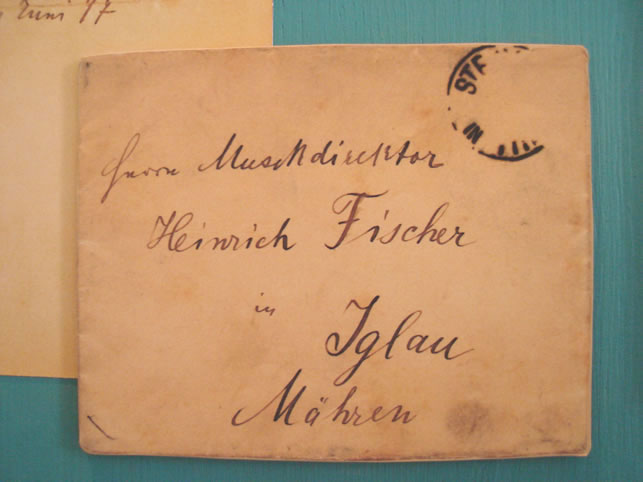 Juni 97
STE
IN
Herrn Musikdirektor
Heinrich Fischer
in
Iglau
Mähren